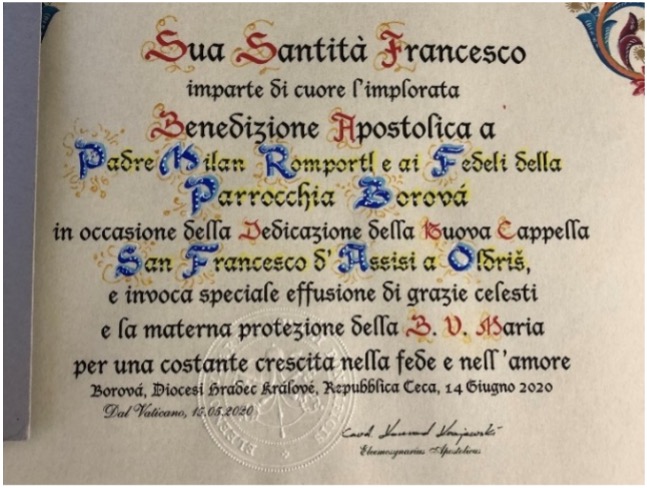 Sua Santità Francesco
imparte di cuore l'implorata
Benedizione Apostolica a
Padre Milan Romportl e ai Fedeli della
Parrocchia Borová
in occasione della Dedicazione della Nuova Cappella
San Francesco d'Assisi a Oldriš,
e invoca speciale effusione di grazie celesti
e la materna protezione della B. V. Maria
per una costante crescita nella fede e nell'amore
Borová, Diocesi Hradec Králové, Repubblica Ceca, 14 Giugno 2020
Dal Vaticano, 15.05.2020
Card. Konrad Krajewski
Eleemosynarius Apostolicus